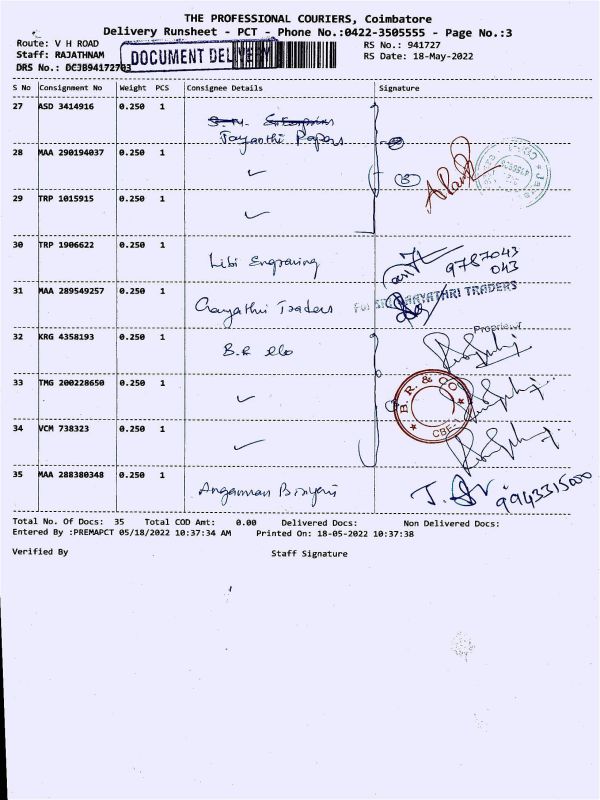 THE PROFESSIONAL COURIERS, Coimbatore
Delivery Runsheet - PCT - Phone No.:0422-3505555 - Page No.:3
Route: V H ROAD
RS No.: 941727
Staff: RAJATHNAM
DOCUMENT DELIVERY
RS Date: 18-May-2022
DRS No.: DCJB94172703
S No Consignment No Weight PCS Consignee Details Signature
27 ASD 3414916 0.250 1
Jayanthi Papers
28 MAA 290194037 0.250 1 ✓
29 TRP 1015915 0.250 1 ✓
30 TRP 1906622 0.250 1 Libi Engraving 9787043
043
31 MAA 289549257 0.250 1 Gayathri Traders
TRADERS
Proprietor
32 KRG 4358193 0.250 1 B.R &Co
33 TMG 200228650 0.250 1 ✓
B. R. & CO
CBE-
34 VCM 738323 0.250 1 ✓
35 MAA 288380348 0.250 1 9943315000
Total No. Of Docs: 35 Total COD Amt: 0.00 Delivered Docs: Non Delivered Docs:
Entered By :PREMAPCT 05/18/2022 10:37:34 AM Printed On: 18-05-2022 10:37:38
Verified By Staff Signature